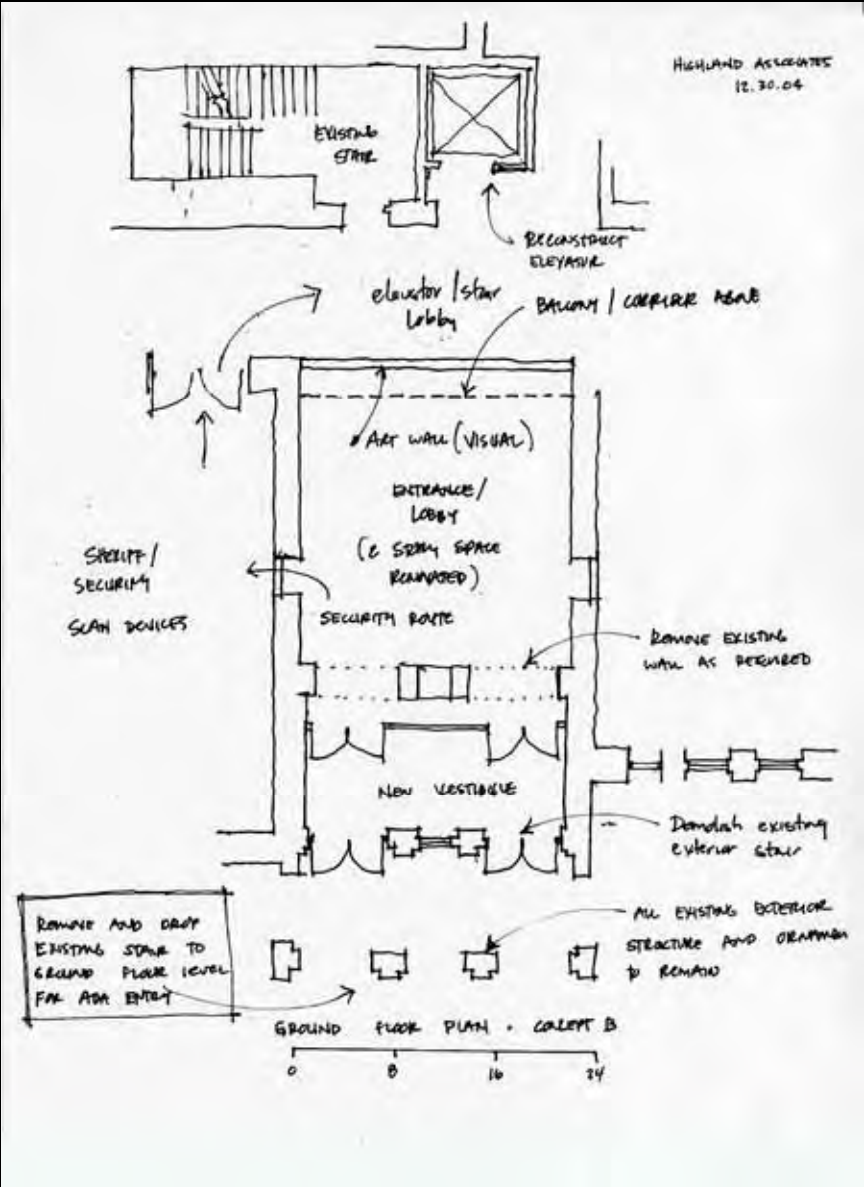 HIGHLAND ASSOCIATES
12.30.04
EXISTING
STAIR
RECONSTRUCT
ELEVATOR
elevator/stair
Lobby
BALCONY / CORRIDOR ABOVE
ART WALL (VISUAL)
ENTRANCE/
LOBBY
(2 STORY SPACE
RENOVATED)
SHERIFF/
SECURITY
SCAN DEVICES
SECURITY ROUTE
REMOVE EXISTING
WALL AS REQUIRED
NEW VESTIBULE
Demolish existing
exterior stair
REMOVE AND DROP
EXISTING STAIR TO
GROUND FLOOR LEVEL
FOR ADA ENTRY
ALL EXISTING EXTERIOR
STRUCTURE AND ORNAMEN
to REMAIN
GROUND FLOOR PLAN . CONCEPT B
0 8 16 24